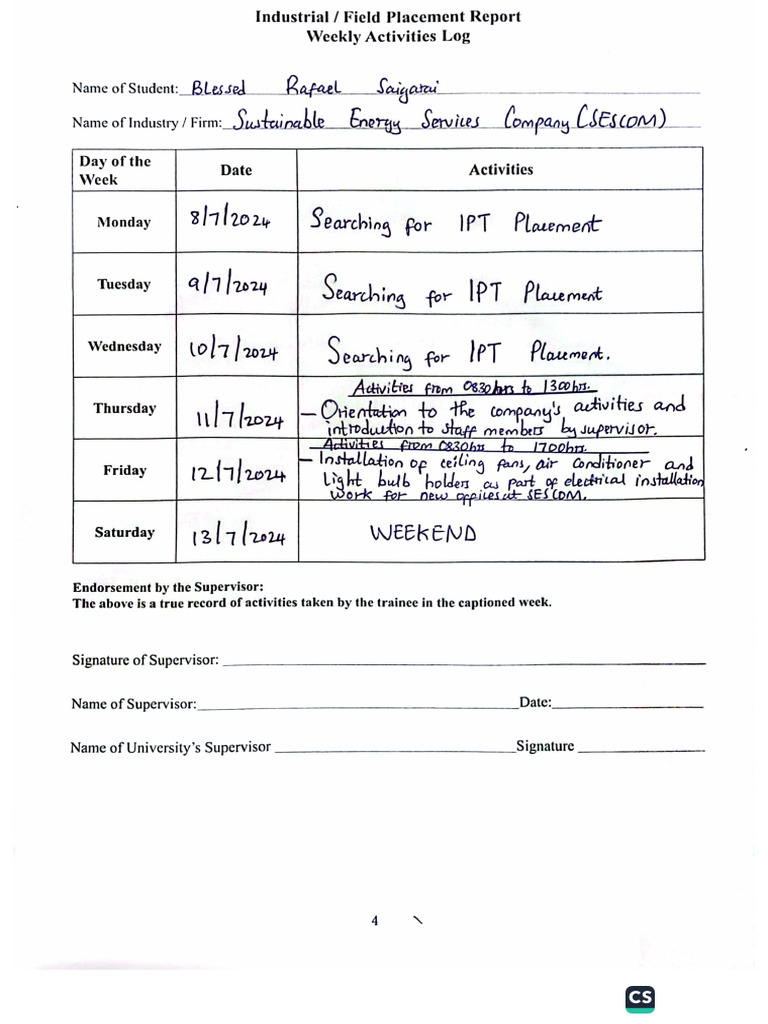 Industrial / Field Placement Report
Weekly Activities Log
Name of Student: Blessed Rafael
Name of Industry / Firm: Sustainable Energy Services Company (SESCOM)
Day of the Week Date Activities
Monday 8/7/2024 Searching for IPT Placement
Tuesday 9/7/2024 Searching for IPT Placement
Wednesday 10/7/2024 Searching for IPT Placement.
Activities from 0830hrs to 1300hrs.
Thursday 11/7/2024 – Orientation to the company's activities and
introduction to staff members by supervisor.
Activities from 0830hrs to 1700hrs.
Friday 12/7/2024 – Installation of ceiling fans, air conditioner and
Light bulb holders as part of electrical installation
work for new offices at SESCOM.
Saturday 13/7/2024 WEEKEND
Endorsement by the Supervisor:
The above is a true record of activities taken by the trainee in the captioned week.
Signature of Supervisor:
Name of Supervisor: Date:
Name of University's Supervisor Signature
4
CS